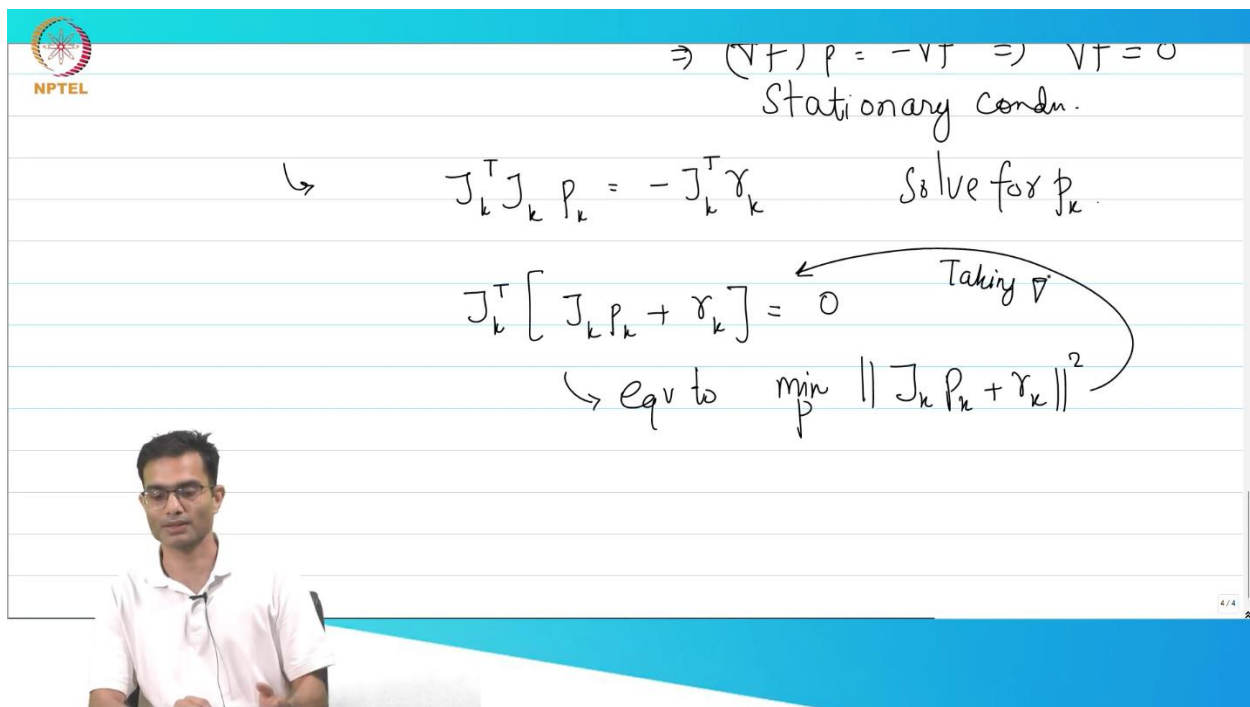 ⇒ (∇f) p = -∇f ⇒ ∇f = 0
NPTEL
Stationary condn.
↳ J_k^T J_k p_k = - J_k^T r_k Solve for p_k.
J_k^T [ J_k p_k + r_k ] = 0 Taking ∇
↳ eqv to min_p || J_k p_k + r_k ||^2
4 / 4